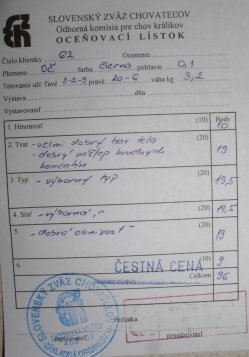 SLOVENSKÝ ZVÄZ CHOVATEĽOV
Odborná komisia pre chov králikov
OCEŇOVACÍ LÍSTOK
Číslo klietky 62 Ocenenie
Plemeno OČ farba čierna pohlavie 0,1
Tetovanie uší: ľavé 2-2-9 pravé 20-6 váha kg 3,2
Výstava dňa
Vystavovateľ
1. Hmotnosť (10) Body 10
2. Tvar - veľmi dobrý tvar tela (20)
- dobrý nástop hrudných 19
končatín
3. Typ - výborný typ (20) 19,5
4. Srsť - výborná (20) 19,5
5. - dobrá (20) 19
6. ČESTNÁ CENA (10) 9
Celkom 96
SLOVENSKÝ ZVÄZ CHOVATEĽOV
ZÁKLADNÁ ORGANIZÁCIA
Pečiatka
zapisovateľ posudzovateľ